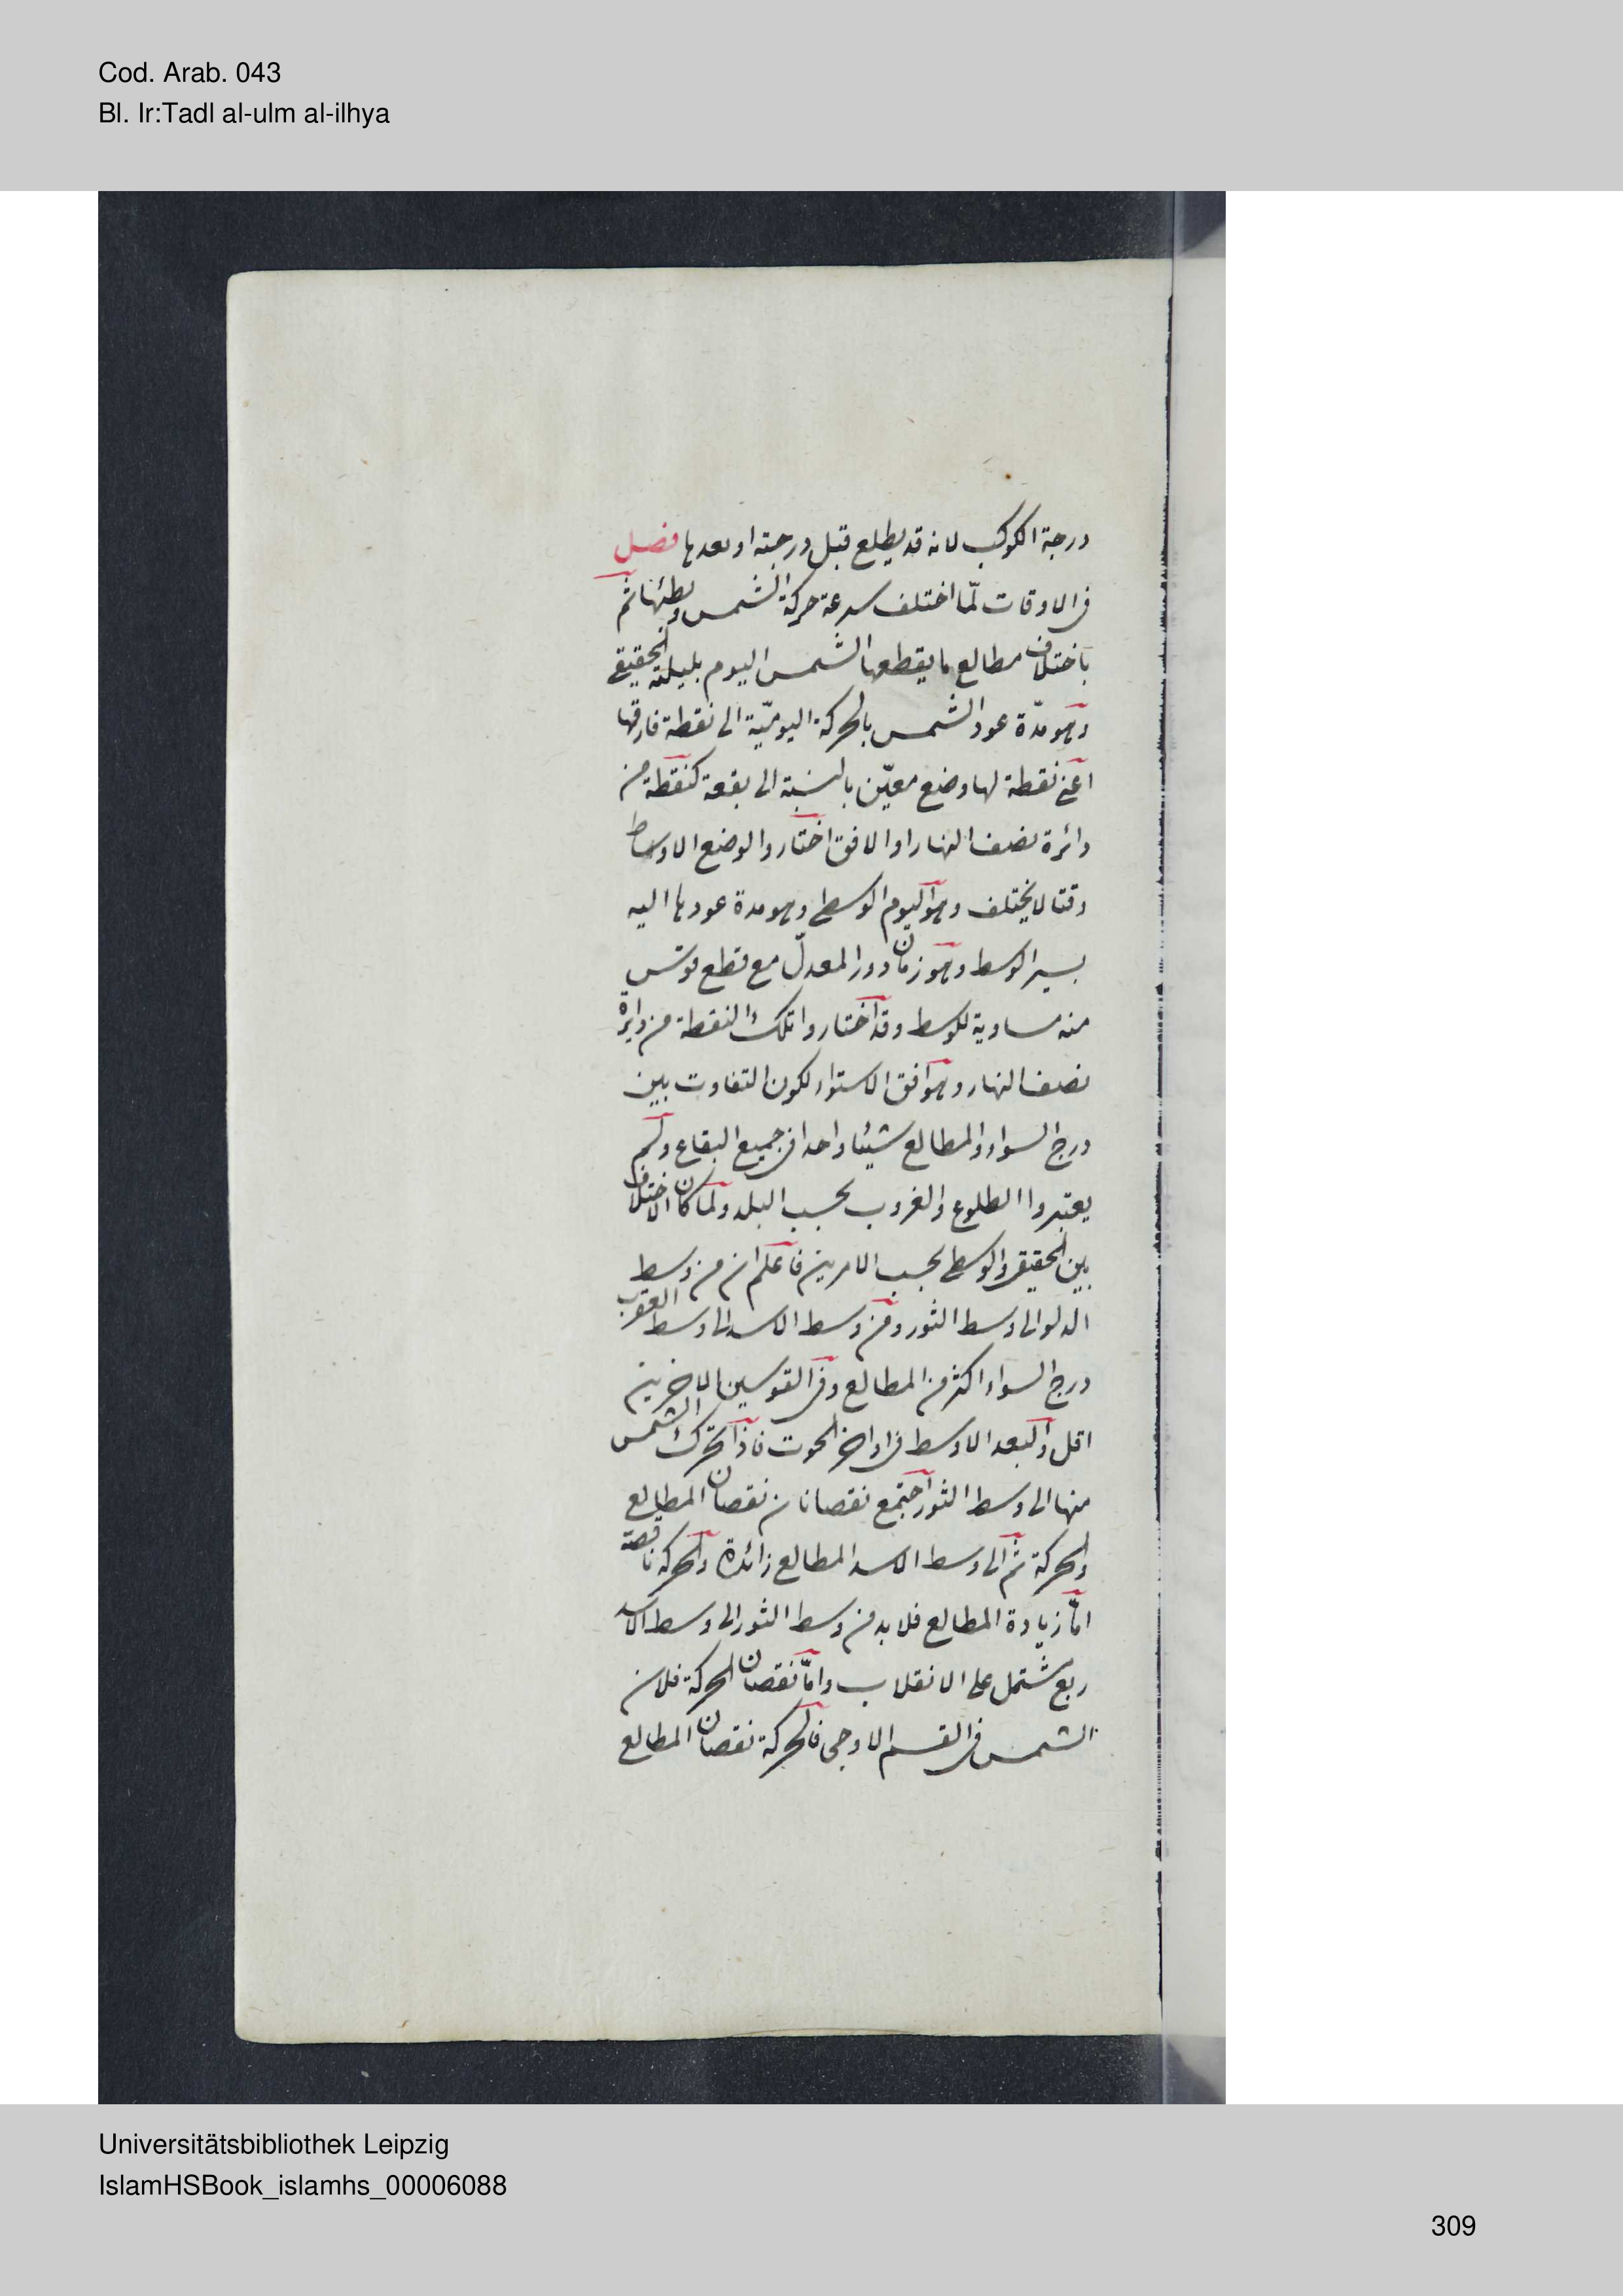 Cod. Arab. 043
Bl. Ir:Tadl al-ulm al-ilhya
درجة الكوكب لانه قد يطلع قبل درجته او بعدها فصل
فى الاوقات لمّا اختلف سرعة حركة الشمس وبطئها ثم
باختلاف مطالع ما يقطعها الشمس اليوم بليلته الحقيقى
وهو مدّة عود الشمس بالحركة اليوميّة الى نقطة فارقها
اعنى نقطة لها وضع معيّن بالنسبة الى بقعة كنقطة من
دائرة نصف النهار او الافق اختاروا لوضع الاوساط
وقتا لا يختلف وهو اليوم الوسطى وهو مدة عودها اليه
بسير الوسط وهو زمان دور المعدّل مع قطع قوس
منه مساوية للوسط وقد اختاروا تلك النقطة من دايرة
نصف النهار وهو افق الاستواء لكون التفاوت بين
درج السواء والمطالع شيئا واحدا فى جميع البقاع ولم
يعتبروا الطلوع والغروب بحسب البلد ولما كان الاختلاف
بين الحقيقى والوسطى بحسب الامرين فاعلم ان من وسط
الدلو الى وسط الثور ومن وسط الاسد الى وسط العقرب
درج السواء اكثر من المطالع وفى القوسين الاخريين
اقل والبعد الاوسط فى اواخر الحوت فاذا تحرك الشمس
منها الى وسط الثور اجتمع نقصانان نقصان المطالع
والحركة ثم الى وسط الاسد المطالع زائدة والحركة ناقصة
امّا زيادة المطالع فلا بد من وسط الثور الى وسط الاسد
ربع يشتمل على الانقلاب وامّا نقصان الحركة فلان
الشمس فى القسم الاوجى فالحركة نقصان المطالع
Universitätsbibliothek Leipzig
IslamHSBook_islamhs_00006088
309